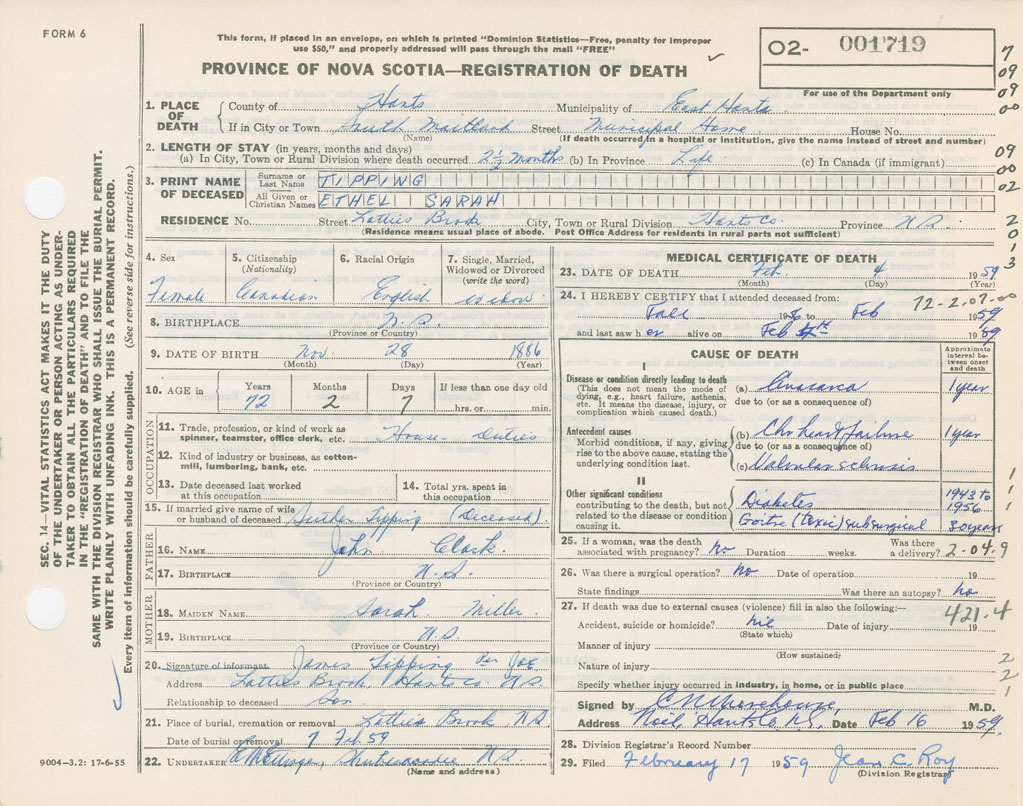 FORM 6
This form, if placed in an envelope, on which is printed "Dominion Statistics—Free, penalty for improper
use $50," and properly addressed will pass through the mail "FREE"
PROVINCE OF NOVA SCOTIA—REGISTRATION OF DEATH
O2- 001719
For use of the Department only
7
09
09
00
09
00
02
2
0
1
3
SEC. 14—VITAL STATISTICS ACT MAKES IT THE DUTY
OF THE UNDERTAKER OR PERSON ACTING AS UNDER-
TAKER TO OBTAIN ALL THE PARTICULARS REQUIRED
IN THE "REGISTRATION OF DEATH" AND TO FILE THE
SAME WITH THE DIVISION REGISTRAR WHO SHALL ISSUE THE BURIAL PERMIT.
WRITE PLAINLY WITH UNFADING INK. THIS IS A PERMANENT RECORD.
Every item of information should be carefully supplied. (See reverse side for instructions.)
1. PLACE OF DEATH County of Hants Municipality of East Hants
If in City or Town South Maitland Street Municipal Home House No.
(Name) (If death occurred in a hospital or institution, give the name instead of street and number)
2. LENGTH OF STAY (in years, months and days)
(a) In City, Town or Rural Division where death occurred 2½ months (b) In Province Life (c) In Canada (if immigrant)
3. PRINT NAME OF DECEASED Surname or Last Name TIPPING
All Given or Christian Names ETHEL SARAH
RESIDENCE No. Street Latties Brook City, Town or Rural Division Hants Co. Province N.S.
(Residence means usual place of abode. Post Office Address for residents in rural parts not sufficient)
4. Sex Female
5. Citizenship (Nationality) Canadian
6. Racial Origin English
7. Single, Married, Widowed or Divorced (write the word)
8. BIRTHPLACE N.S.
(Province or Country)
9. DATE OF BIRTH Nov. 28 1886
(Month) (Day) (Year)
10. AGE in Years 72 Months 2 Days 7 If less than one day old hrs. or min.
OCCUPATION
11. Trade, profession, or kind of work as spinner, teamster, office clerk, etc. House Duties
12. Kind of industry or business, as cotton-mill, lumbering, bank, etc.
13. Date deceased last worked at this occupation
14. Total yrs. spent in this occupation
15. If married give name of wife or husband of deceased Tipping (Deceased).
FATHER
16. NAME John Clark
17. BIRTHPLACE N.S.
(Province or Country)
MOTHER
18. MAIDEN NAME Sarah Miller
19. BIRTHPLACE N.S.
(Province or Country)
20. Signature of informant James Tipping Per JOE
Address Latties Brook, Hants Co. N.S.
Relationship to deceased Son
21. Place of burial, cremation or removal Latties Brook N.S.
Date of burial or removal 7 Feb. 59
22. UNDERTAKER Shubenacadie N.S.
(Name and address)
9004—3.2: 17-6-55
MEDICAL CERTIFICATE OF DEATH
23. DATE OF DEATH Feb. 4 1959
(Month) (Day) (Year)
24. I HEREBY CERTIFY that I attended deceased from: 72-2-07-00
Fall 1956 to Feb 1959
and last saw h er alive on Feb 1959
CAUSE OF DEATH
Approximate interval between onset and death
I
Disease or condition directly leading to death
(This does not mean the mode of dying, e.g., heart failure, asthenia, etc. It means the disease, injury, or complication which caused death.)
(a) Anasarca 1 year
due to (or as a consequence of)
Antecedent causes
Morbid conditions, if any, giving rise to the above cause, stating the underlying condition last.
(b) Chr heart failure 1 year
due to (or as a consequence of)
(c) Valvular sclerosis
II
Other significant conditions
contributing to the death, but not related to the disease or condition causing it.
Diabetes 1943 to 1956
Goitre (toxic) subsurgical 30 years
1
1
1
25. If a woman, was the death associated with pregnancy? No Duration weeks. Was there a delivery? 2-04-9
26. Was there a surgical operation? No Date of operation 19
State findings Was there an autopsy? No
27. If death was due to external causes (violence) fill in also the following:— 421.4
Accident, suicide or homicide? nil Date of injury 19
(State which)
Manner of injury
(How sustained)
Nature of injury
Specify whether injury occurred in industry, in home, or in public place
2
2
1
Signed by M.D.
Address Noel, Hants Co N.S. Date Feb 16 1959.
28. Division Registrar's Record Number
29. Filed February 17 1959 Jean C. Roy
(Division Registrar)